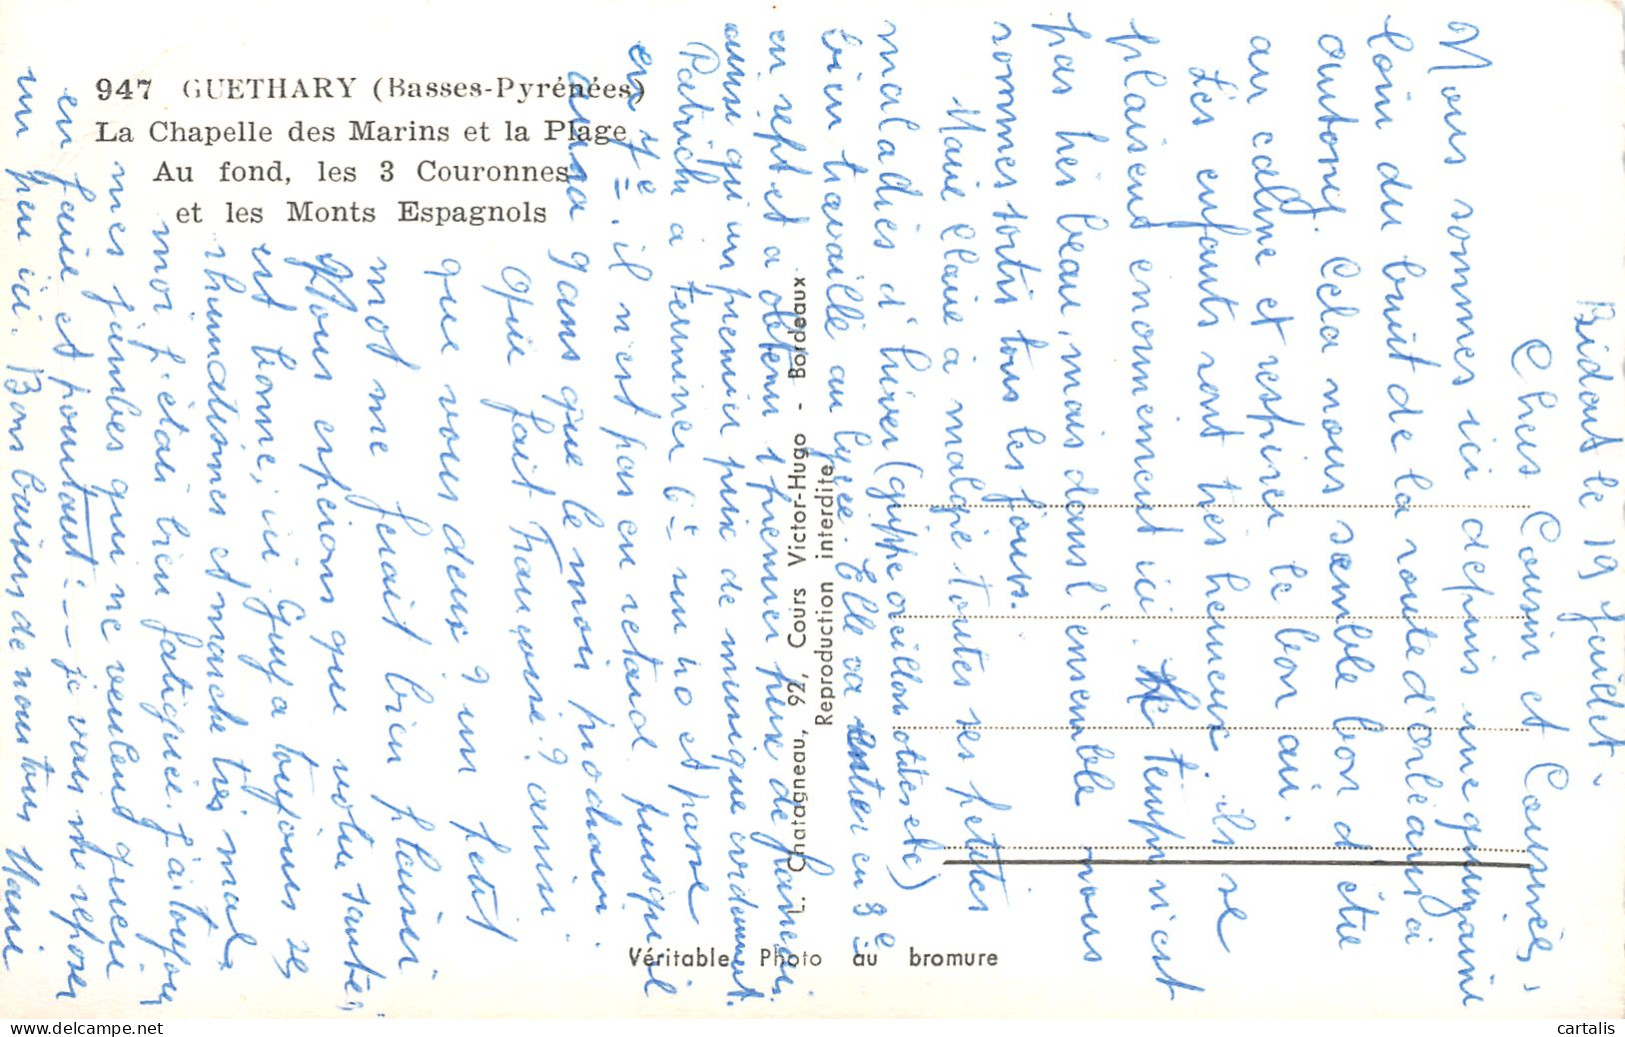 947 GUETHARY (Basses-Pyrénées)
La Chapelle des Marins et la Plage
Au fond, les 3 Couronnes
et les Monts Espagnols
L. Chatagneau, 92, Cours Victor-Hugo - Bordeaux
Reproduction interdite
Véritable Photo au bromure
Bidart le 19 Juillet
Chers Cousin et Cousines,
Nous sommes ici depuis une quinzaine
loin du bruit de la route d'orléans ici
Cela nous semble bon d'être
au calme et respirer le bon air.
Les enfants sont très heureux, ils se
plaisent enormement ici. Le temps n'est
pas très beau, mais dans l'ensemble nous
sommes sortis tous les jours.
Marie Claire a malgré toutes ses petites
maladies d'hiver (grippe oreillon otites etc)
bien travaillé au lycée. Elle va entrer en 3e
en sept et a obtenu 1 premier prix de
ainsi qu'un premier prix de musique evidemment.
Patrick a terminer 6e sur 40 et passe
en 7e. il n'est pas en retard puisqu'il
aura 9 ans que le mois prochain.
Que fait Françoise ? ainsi
que vous deux ? un petit
mot me ferait bien plaisir.
Nous espérons que votre santé
est bonne, ici Guy a toujours ses
rhumatismes et marche très mal,
moi j'étais bien fatiguée. j'ai toujours
mes jambes qui ne veulent guère
en faire et pourtant :- je vais me reposer
un peu ici. Bons baisers de nous tous
cartalis